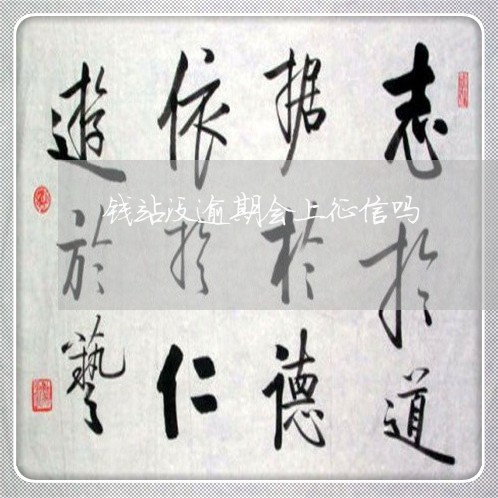 志於道
据於德
依於仁
遊於藝
钱站没逾期会上征信吗